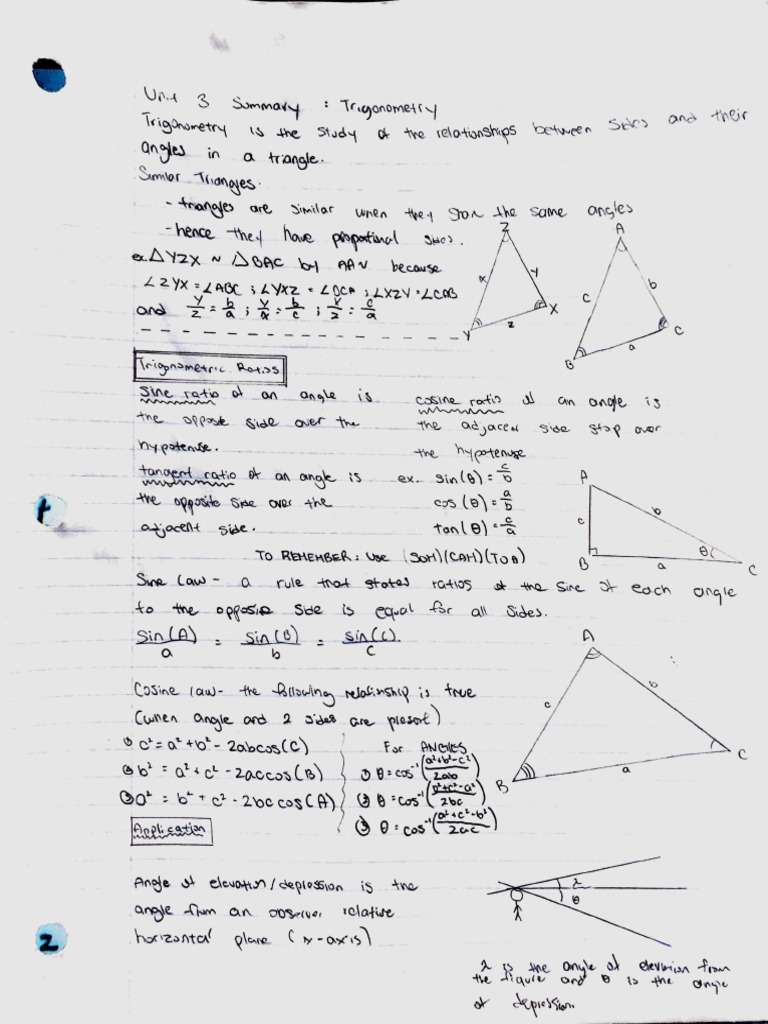 Unit 3 Summary : Trigonometry
Trigonometry is the study of the relationships between sides and their
angles in a triangle.
Similar Triangles.
- triangles are similar when they share the same angles
- hence they have proportional sides.
ex. △YZX ~ △BAC by AA~ because
∠ZYX = ∠ABC ; ∠YXZ = ∠BCA ; ∠XZY = ∠CAB
and y/z = b/a ; y/x = b/c ; x/z = c/a
Z
x
y
Y
z
X
A
c
b
B
a
C
Trigonometric Ratios
sine ratio of an angle is
the opposite side over the
hypotenuse.
cosine ratio of an angle is
the adjacent side over
the hypotenuse
tangent ratio of an angle is
the opposite side over the
adjacent side.
ex. sin(θ) = c/b
cos(θ) = a/b
tan(θ) = c/a
A
c
b
B
a
θ
C
TO REMEMBER: use (SOH)(CAH)(TOA)
Sine law - a rule that states ratios of the sine of each angle
to the opposite side is equal for all sides.
sin(A)/a = sin(B)/b = sin(C)/c
Cosine law - the following relationship is true
(when angle and 2 sides are present)
① c² = a² + b² - 2abcos(C)
② b² = a² + c² - 2accos(B)
③ a² = b² + c² - 2bc cos(A)
For ANGLES
① θ = cos⁻¹((a²+b²-c²)/2ab)
② θ = cos⁻¹((b²+c²-a²)/2bc)
③ θ = cos⁻¹((a²+c²-b²)/2ac)
A
c
b
B
a
C
Application
Angle of elevation/depression is the
angle from an observer relative
horizontal plane (x-axis)
λ
θ
λ is the angle of elevation from
the figure and θ is the angle
of depression.
1
2